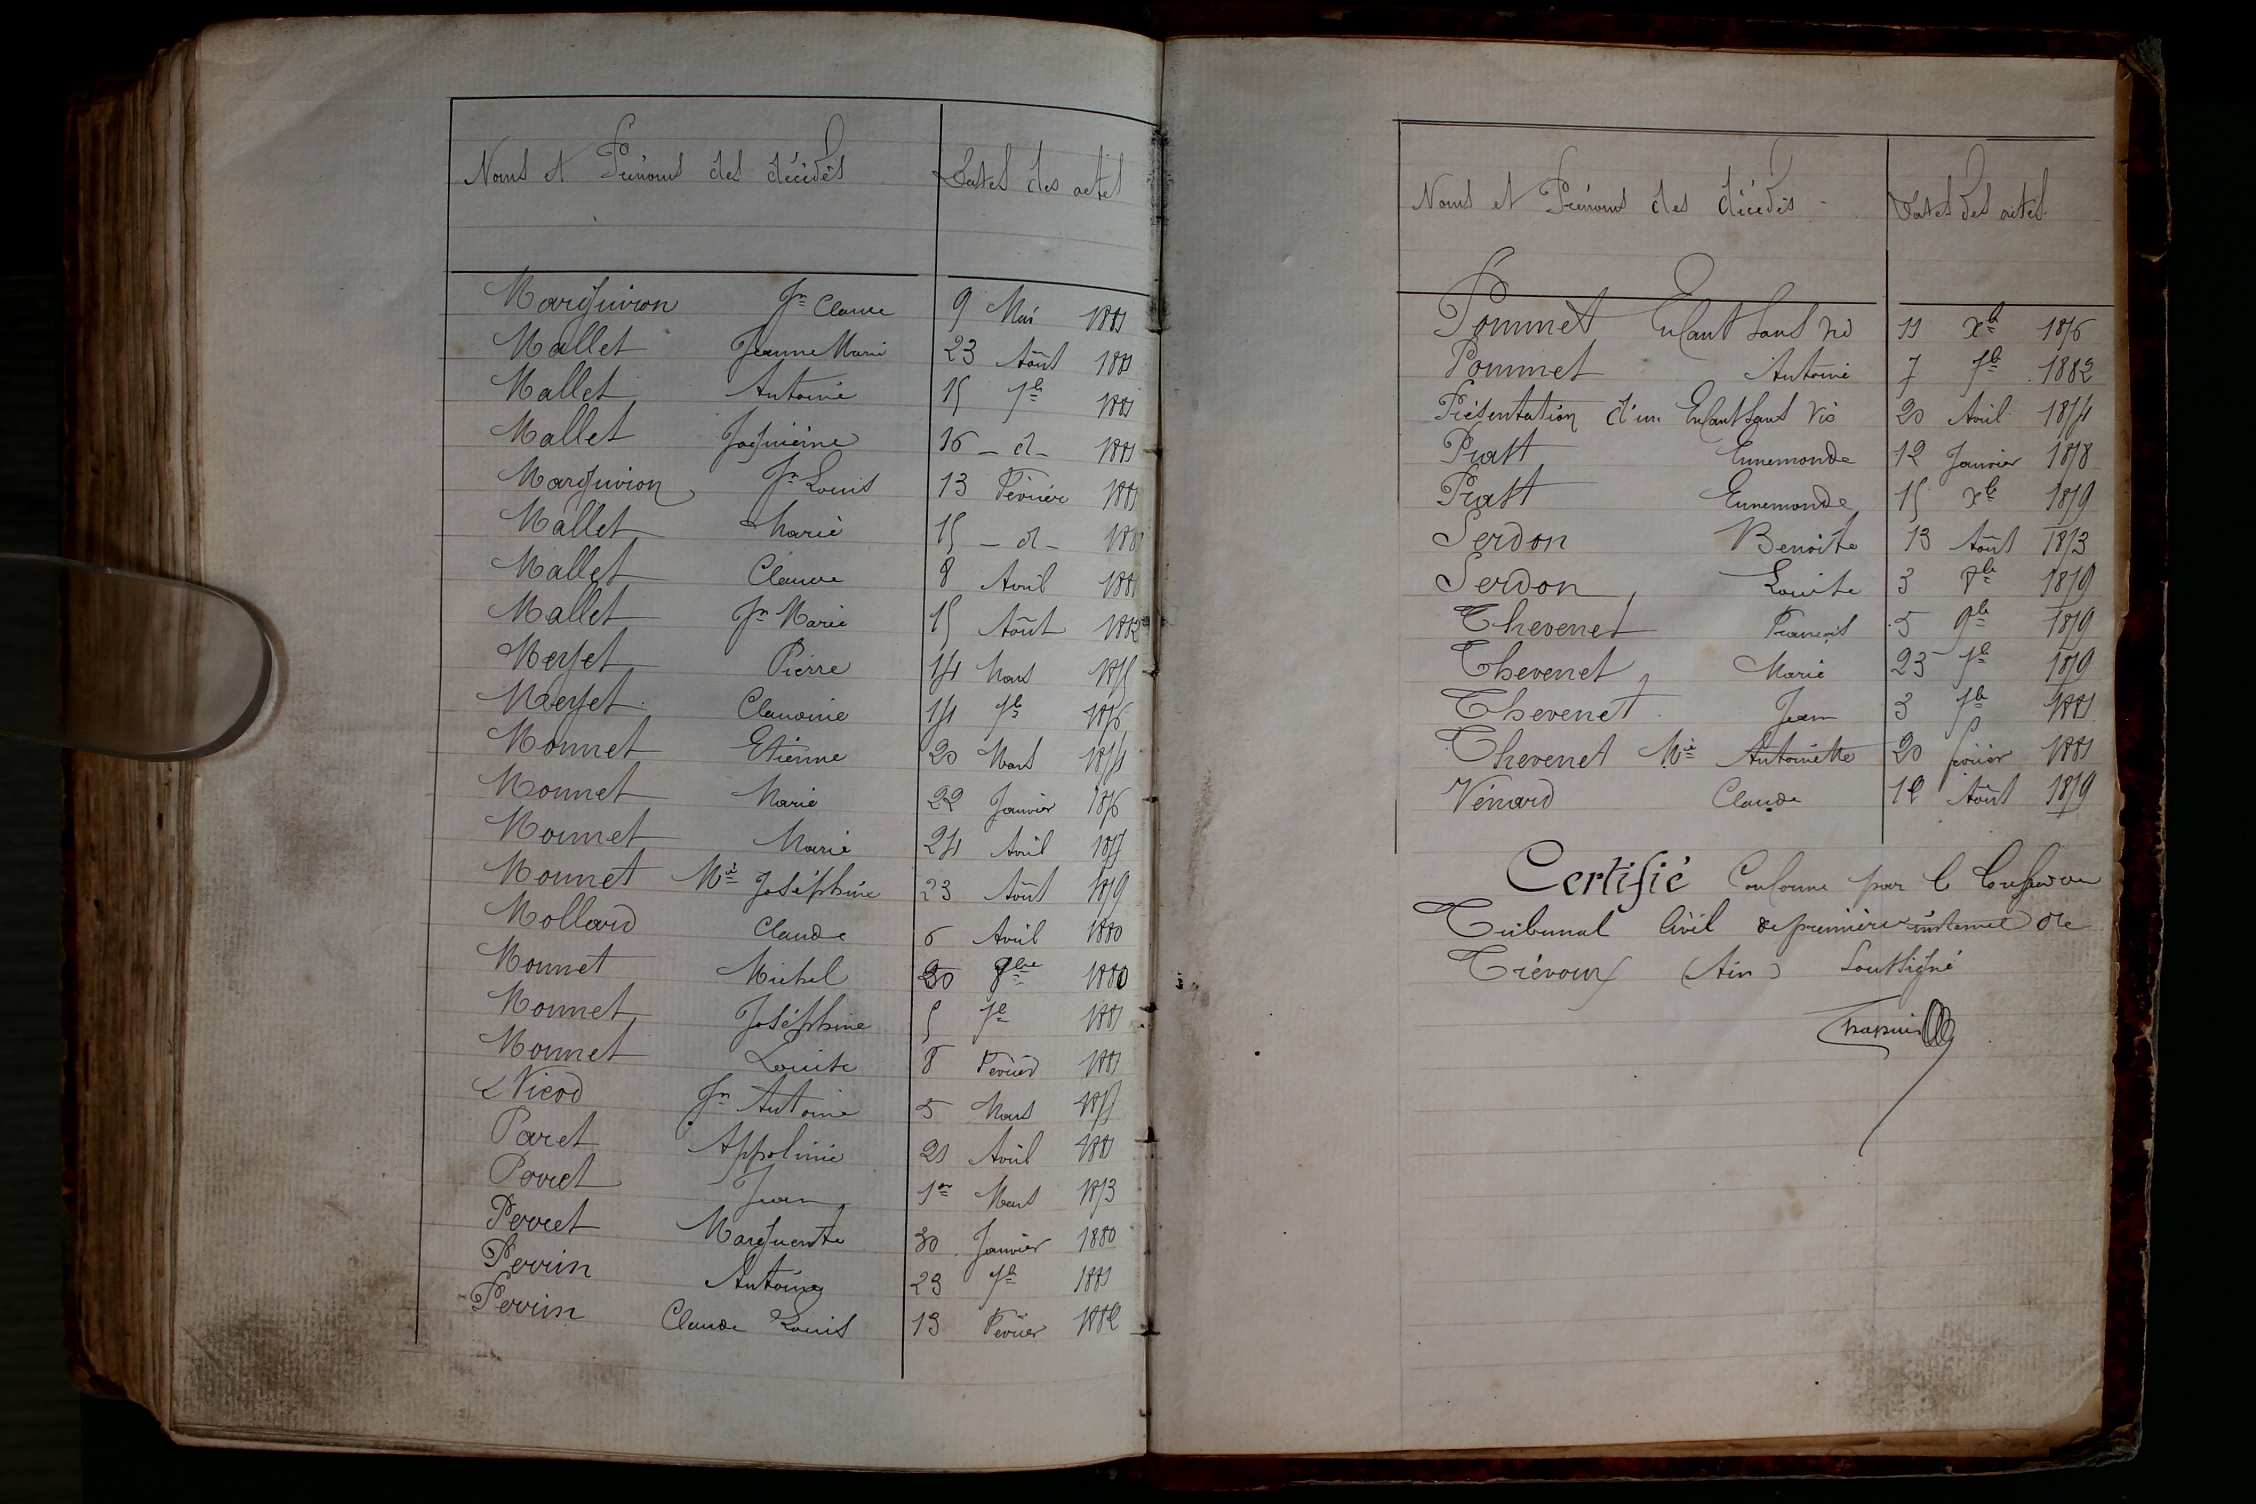 Noms et Prénoms des décédés Dates des actes
Marguivion Jn Claude 9 Mai 1881
Mallet Jeanne Marie 23 Août 1881
Mallet Antoine 15 7b 1881
Mallet Jaquième 16 - d - 1881
Marguivion Jn Louis 13 Février 1881
Mallet Marie 15 - d - 1881
Mallet Claude 8 Avril 1881
Mallet Jn Marie 15 Août 1882
Meyet Pierre 14 Mars 1875
Meyet Claudine 14 7b 1876
Monnet Etienne 20 Mars 1874
Monnet Marie 22 Janvier 1876
Monnet Marie 24 Avril 1877
Monnet Mie Joséphine 23 Août 1879
Mollard Claude 6 Avril 1880
Monnet Michel 30 8bre 1880
Monnet Joséphine 5 7b 1881
Monnet Louise 8 Février 1881
Nicod Jn Antoine 5 Mars 1877
Paret Appolinie 21 Avril 1881
Perret Jean 1er Mars 1873
Perret Marguerite 30 Janvier 1880
Perrin Antoine 23 7b 1881
Perrin Claude Louis 13 Février 1882
Noms et Prénoms des décédés Dates des actes
Pommet Enfant Sans vie 11 Xb 1876
Pommet Antoine 7 7b 1882
Présentation d'un Enfant sans vie 20 Avril 1874
Pratt Ennemonde 12 Janvier 1878
Pratt Ennemonde 15 Xb 1879
Serdon Benoite 13 Août 1873
Serdon Louise 3 8b 1879
Thevenet François 5 9b 1879
Thevenet Marie 23 7b 1879
Thevenet Jean 3 7b 1881
Thevenet Mie Antoinette 20 février 1881
Vénard Claude 12 Août 1879
Certifié Conforme par le Greffier du
Tribunal Civil de première instance de
Trévoux (Ain) Soussigné
Chapuis